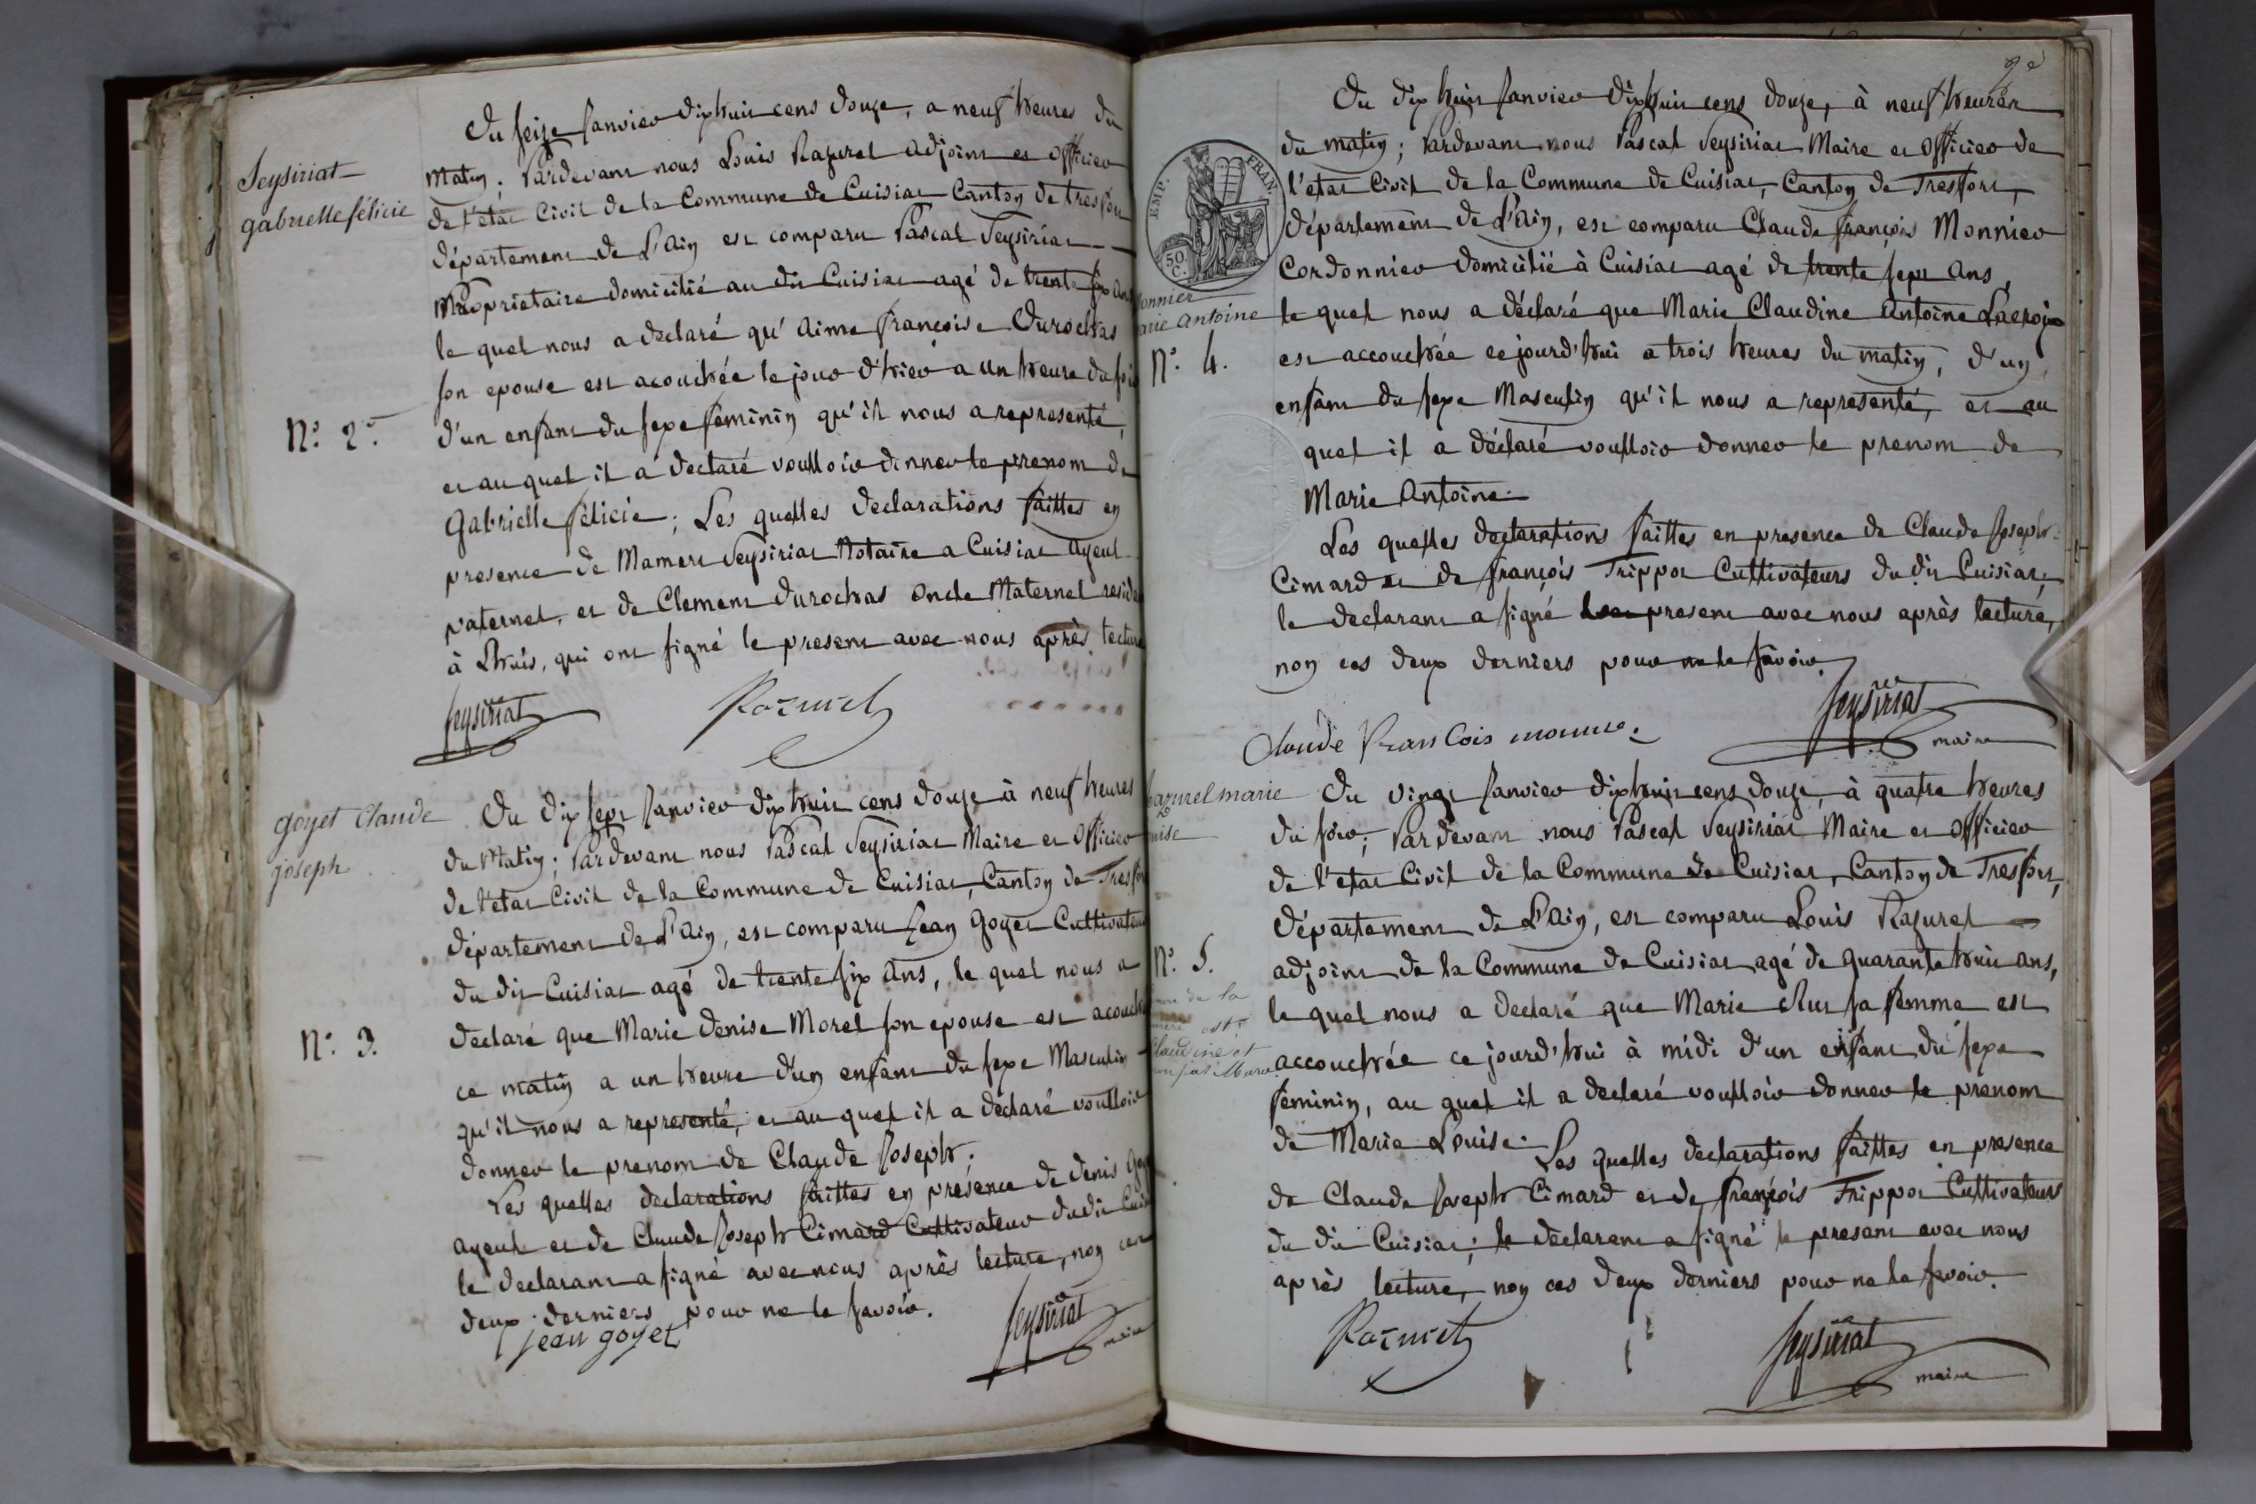 Du seize Janvier dix huit cens douze, a neuf heures du
Seysiriat
gabrielle félicie
matin; Pardevant nous Louis Razurel adjoint et officier
de l'état Civil de la Commune de Cuisiat Canton de tresfort
département de L'Ain est comparu Pascal Seysiriat
Propriétaire domicilié au dit Cuisiat agé de trente six ans
le quel nous a declaré qu'aime françoise Durochas
son epouse est acouchée le jour d'hier a un heure du soir
N°. 2.
d'un enfant du sexe féminin qu'il nous a representé,
et au quel il a declaré voulloir donner le prenom de
Gabrielle félicie; Les quelles declarations faittes en
presence de Mamert Seysiriat Notaire a Cuisiat ayeul
paternel, et de Clement durochas oncle Maternel reside
à Lhuis, qui ont signé le present avec nous après lecture
Seysiriat Razurel
goyet Claude
joseph
Du dix sept Janvier dix huit cens douze à neuf heures
du Matin; Pardevant nous Pascal Seysiriat Maire et officier
de l'etat Civil de la Commune de Cuisiat, Canton de Tresfort
département de L'Ain, est comparu Jean Goyet Cultivateur
du dit Cuisiat agé de trente six ans, le quel nous a
N°. 3.
declaré que Marie denise Morel son epouse est acouchée
ce matin a un heure d'un enfant du sexe Masculin
qu'il nous a representé, et au quel il a declaré voulloir
donner le prenom de Claude Joseph.
Les quelles declarations faittes en présence de denis Goy
ayeul et de Claude Joseph Cimard Cultivateur du dit Cuis
le declarant a signé avec nous après lecture, non ces
deux derniers pour ne le savoir.
jean goyet Seysiriat
maire
Du dix huit Janvier dix huit cens douze, à neuf heures
du matin; Pardevant nous Pascal Seysiriat Maire et officier de
l'etat Civil de la Commune de Cuisiat, Canton de Tresfort,
EMP. FRAN.
50 C.
département de L'Ain, est comparu Claude françois Monnier
Cordonnier domicilié à Cuisiat agé de trente sept ans,
onnier
arie antoine
le quel nous a déclaré que Marie Claudine Antoine Lacroix
N°. 4.
est accouchée ce jourd'hui a trois heures du matin, d'un
enfant du sexe Masculin qu'il nous a representé, et au
quel il a déclaré voulloir donner le prenom de
Marie Antoine.
Les quelles declarations faittes en presence de Claude Joseph
Cimard et de françois Trippoz Cultivateurs du dit Cuisiat,
le declarant a signé le present avec nous après lecture,
non ces deux derniers pour ne le savoir.
Claude François monnie. Seysiriat
maire
Razurel marie
uise
Du vingt Janvier dix huit cens douze, à quatre heures
du soir; Pardevant nous Pascal Seysiriat Maire et officier
de l'etat Civil de la Commune de Cuisiat, Canton de Tresfort,
département de L'Ain, est comparu Louis Razurel
N°. 5.
adjoint de la Commune de Cuisiat agé de quarante huit ans,
de la
mere est
Claudine et
non pas Marie
le quel nous a declaré que Marie sa femme est
accouchée ce jourd'hui à midi d'un enfant du sexe
féminin, au quel il a declaré voulloir donner le prenom
de Marie Louise. Les quelles declarations faittes en presence
de Claude Joseph Cimard et de françois Trippoz Cultivateurs
du dit Cuisiat; le declarant a signé le present avec nous
après lecture, non ces deux derniers pour ne le savoir.
Razurel Seysiriat
maire